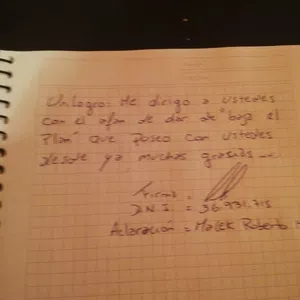 Unlogro: Me dirigo a ustedes
con el afan de dar de "baja el
Plan" que poseo con ustedes
desde ya muchas grasias...
Firma =
D.N.I. = 36.931.715
Aclaración = Malek Roberto